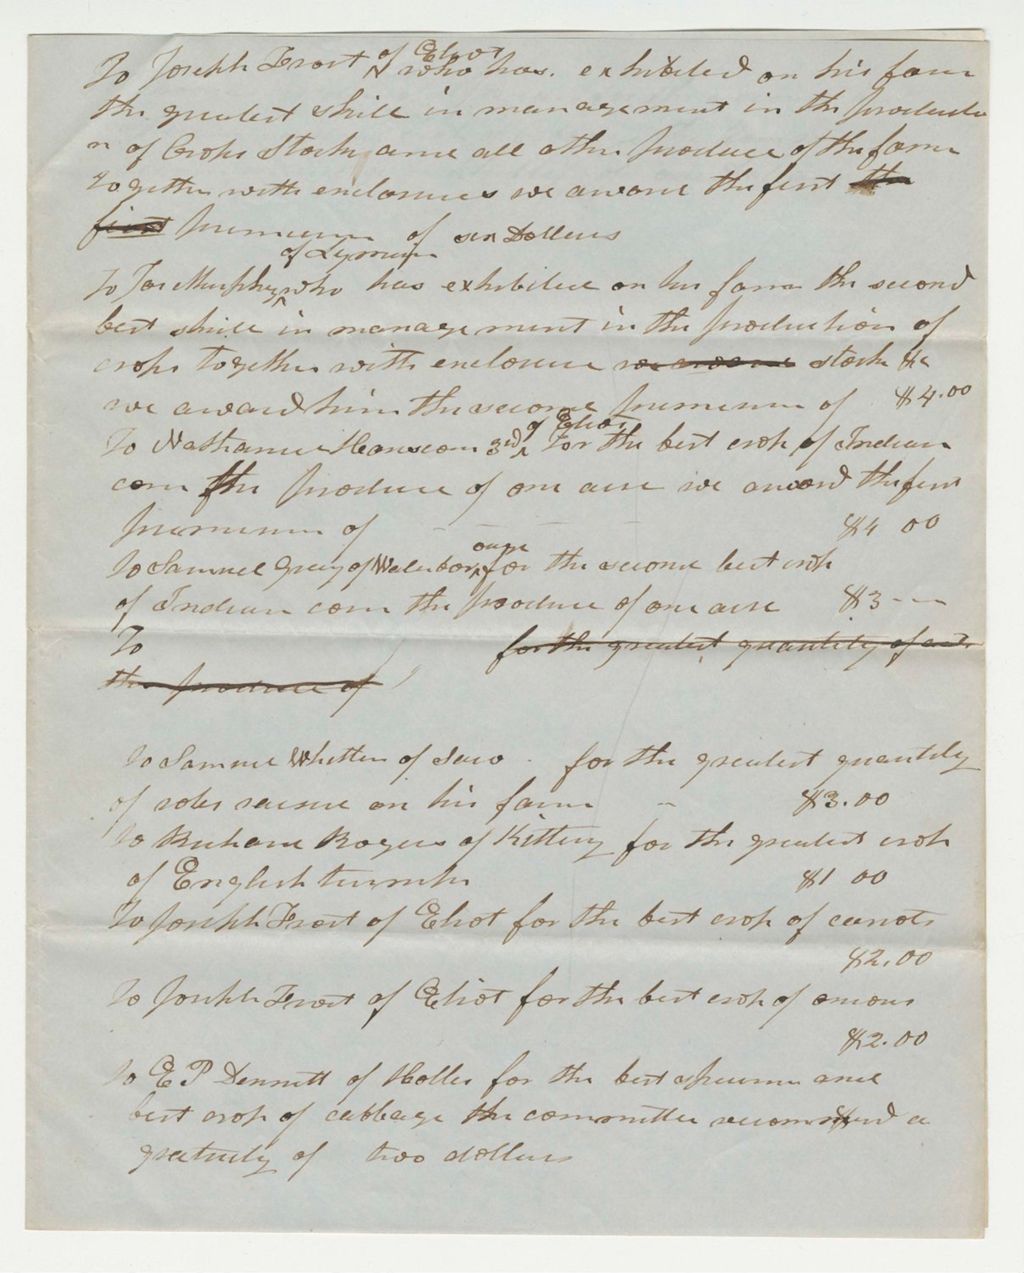 of Eliot
To Joseph Frost who has exhibited on his farm
the greatest skill in management in the productio
n of Crops Stock and all other produce of the farm
together with enclosures we award the first the
first premium of six Dollars
of Lyman
To Jas Murphy who has exhibited on his farm the second
best skill in management in the production of
crops together with enclosure we award stock &c
we award him the second premium of $4.00
of Eliot
To Nathaniel Hanscom 3rd for the best crop of Indian
corn the produce of one acre we award the first
premium of $4 00
ough
To Samuel Grey of Waterboro for the second best crop
of Indian corn the produce of one acre $3
To for the greatest quantity of oats
the produce of
To Samuel Whitten of Saco for the greatest quantity
of oats raised on his farm $3.00
To Richard Rogers of Kittery for the greatest crop
of English turnips $1 00
To Joseph Frost of Eliot for the best crop of carrots
$2.00
To Joseph Frost of Eliot for the best crop of onions
$2.00
To E P Dennett of Hollis for the best specimen and
best crop of cabbage the committee recommend a
gratuity of two dollars